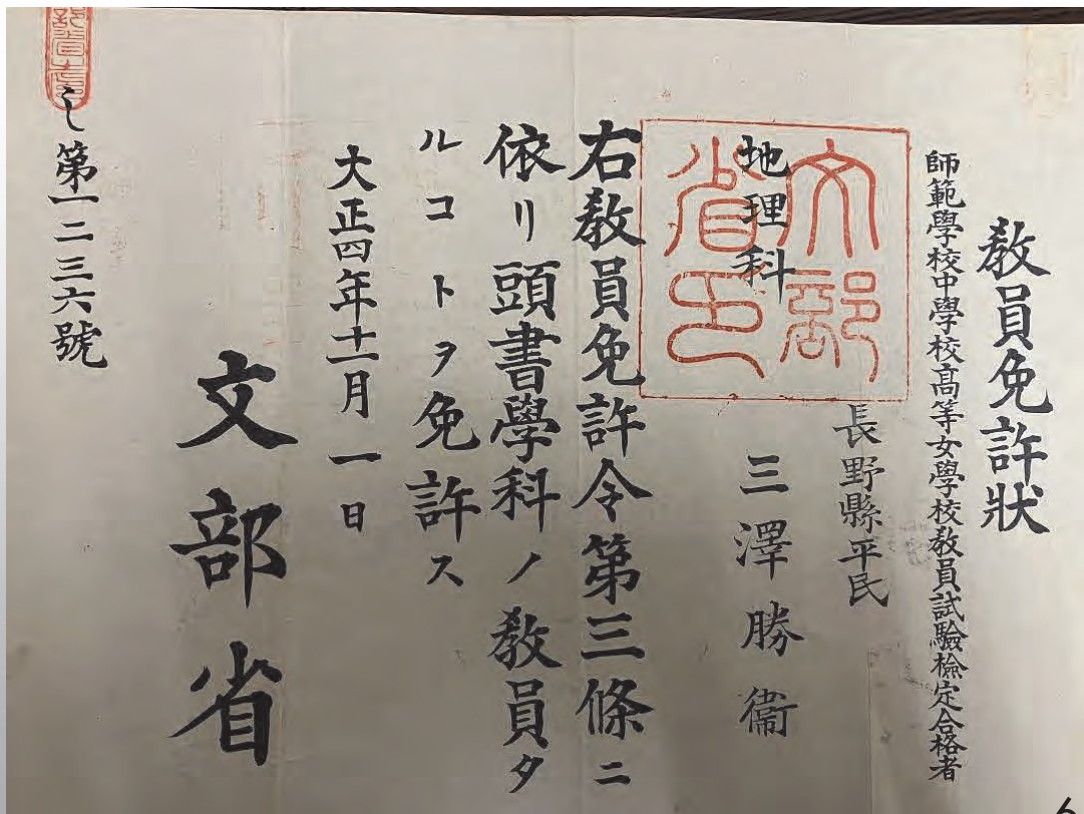 教員免許狀
師範學校中學校高等女學校教員試驗檢定合格者
長野縣平民
三澤勝衞
地理科
文部省印
右教員免許令第三條ニ
依リ頭書學科ノ教員タ
ルコトヲ免許ス
大正四年十一月一日
文部省
第一二三六號
6